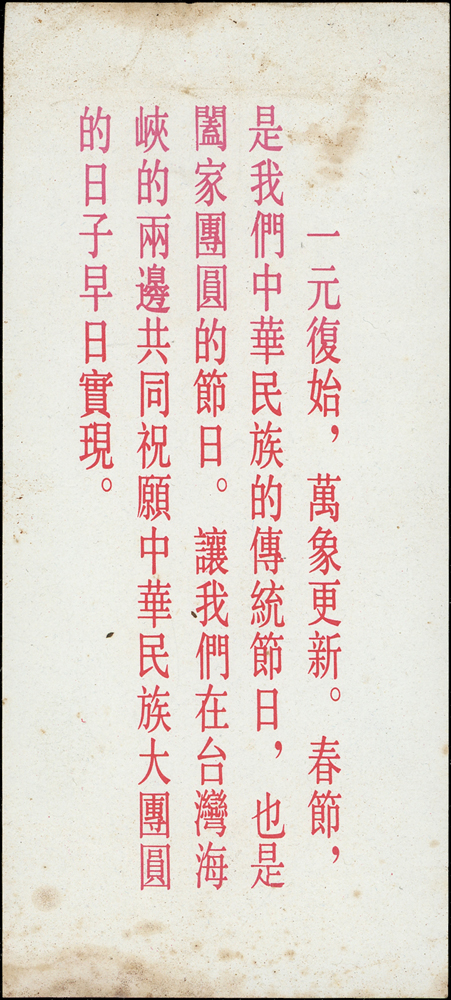 一元復始，萬象更新。春節，
是我們中華民族的傳統節日，也是
闔家團圓的節日。讓我們在台灣海
峽的兩邊共同祝願中華民族大團圓
的日子早日實現。